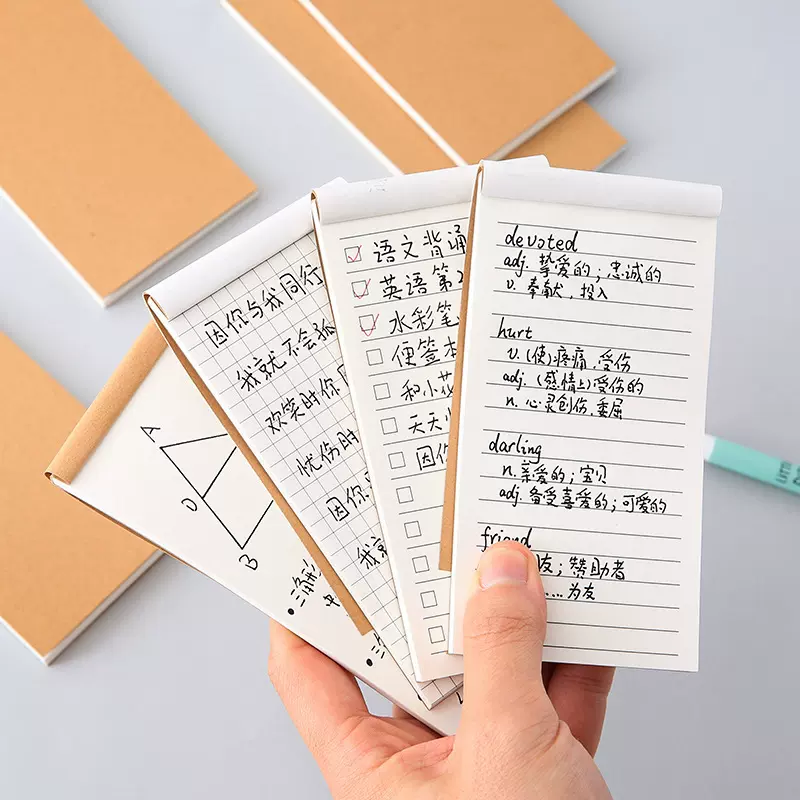 A
D
B
三角形
中
三
因你与我同行
我就不会孤
欢笑时你
忧伤时
因你
我就
语文背诵
英语第2
水彩笔
便签本
和小花
天天
因你
devoted
adj. 挚爱的；忠诚的
v. 奉献，投入
hurt
v. (使)疼痛，受伤
adj. (感情上)受伤的
n. 心灵创伤，委屈
darling
n. 亲爱的；宝贝
adj. 备受喜爱的；可爱的
friend
友；赞助者
……为友